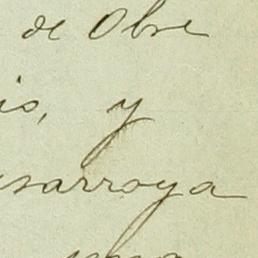 de Obre
is, y
sarroya
una